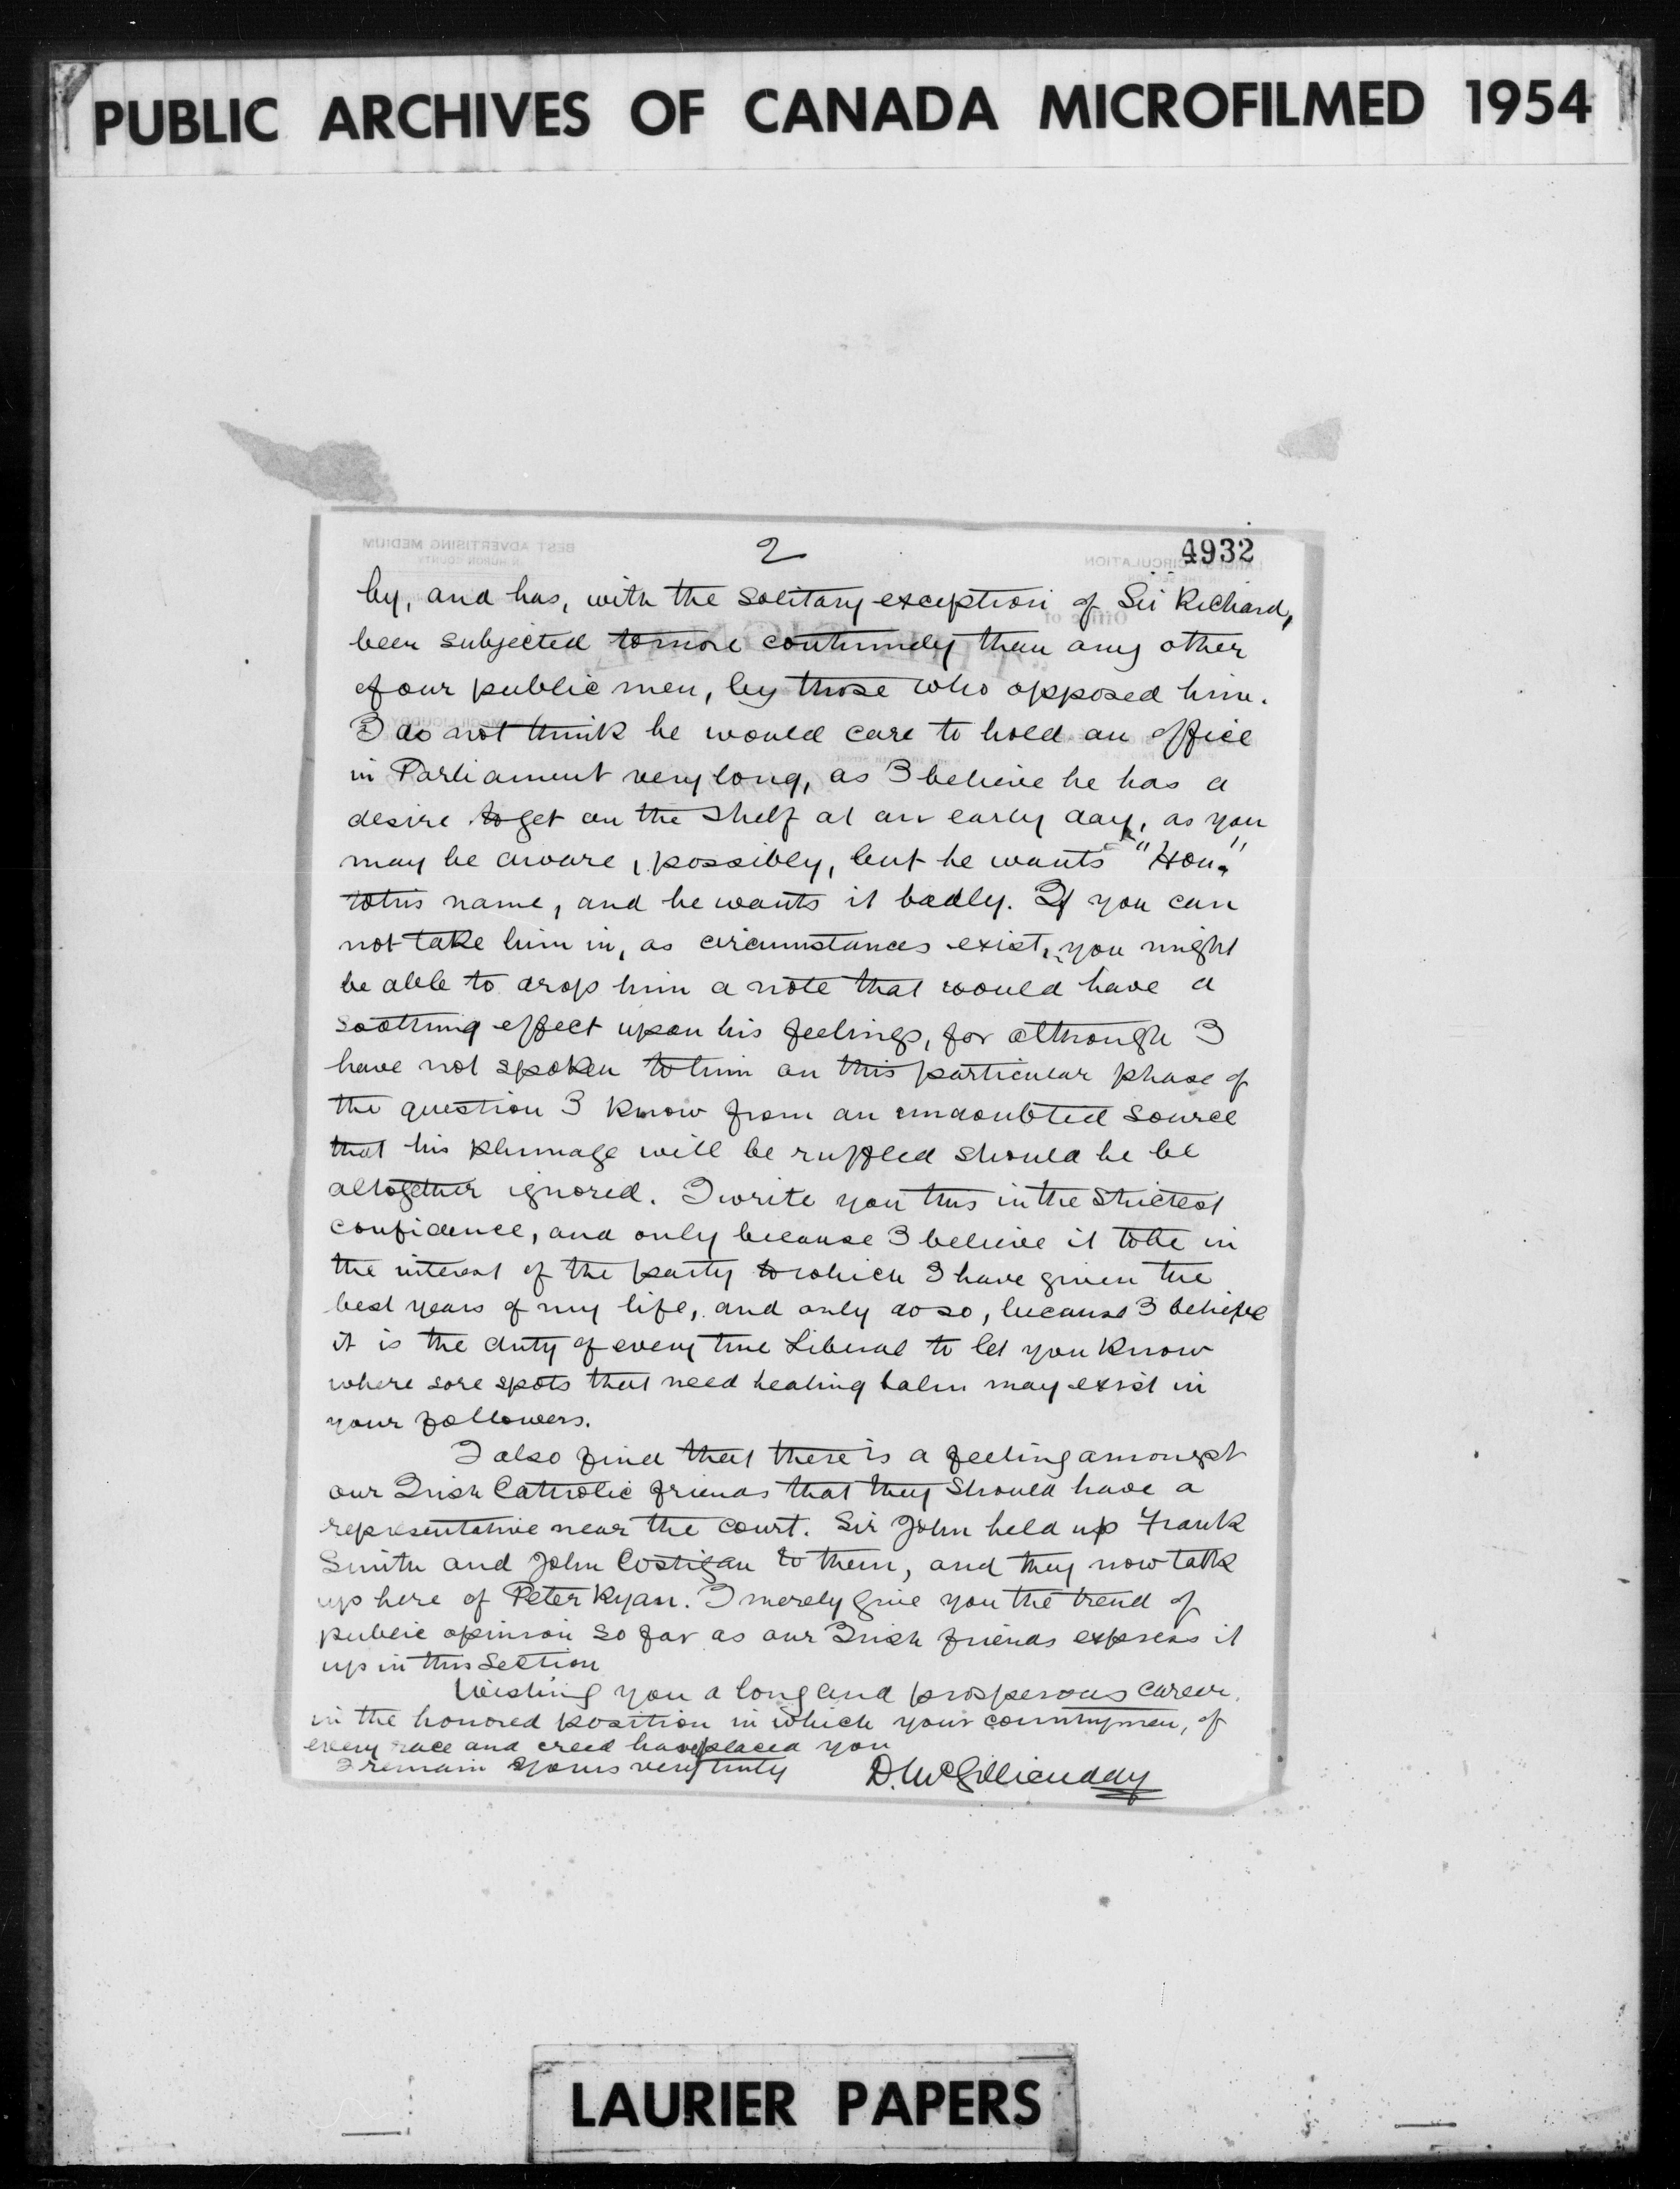 PUBLIC ARCHIVES OF CANADA MICROFILMED 1954
2
4932
by, and has, with the solitary exception of Sir Richard,
been subjected to more contumely than any other
of our public men, by those who opposed him.
I do not think he would care to hold an office
in Parliament very long, as I believe he has a
desire to get on the shelf at an early day, as you
may be aware, possibly, but he wants "Hon."
to his name, and he wants it badly. If you can
not take him in, as circumstances exist, you might
be able to drop him a note that would have a
soothing effect upon his feelings, for although I
have not spoken to him on this particular phase of
the question I know from an undoubted source
that his plumage will be ruffled should he be
altogether ignored. I write you thus in the strictest
confidence, and only because I believe it to be in
the interest of the party to which I have given the
best years of my life, and only do so, because I believe
it is the duty of every true Liberal to let you know
where sore spots that need healing balm may exist in
your followers.
I also find that there is a feeling amongst
our Irish Catholic friends that they should have a
representative near the court. Sir John held up Frank
Smith and John Costigan to them, and they now talk
up here of Peter Ryan. I merely give you the trend of
public opinion so far as our Irish friends express it
up in this section
Wishing you a long and prosperous career,
in the honored position in which your countrymen, of
every race and creed have placed you
I remain Yours very truly D. McGillicuddy
LAURIER PAPERS